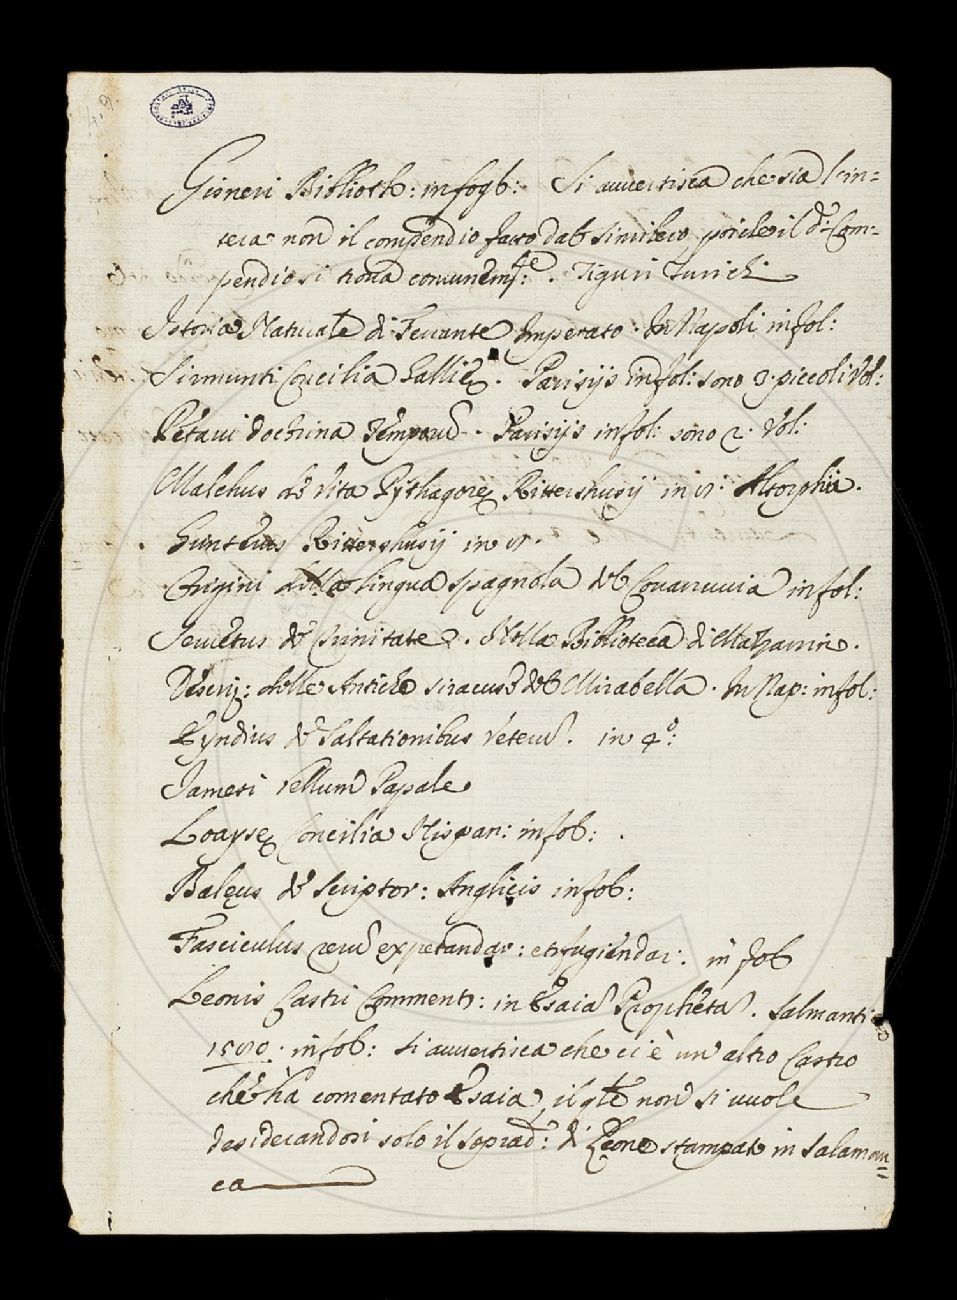 Gisneri Biblioth: in fogl: Si auuertisca che sia l'in=
tera non il compendio fatto dal Simlero, poiche il d.º Com=
pendio si troua comunem.te. Tiguri Turichi
Istoria Naturale di Ferrante Imperato. In Napoli in fol:
Sirmunti Concilia Galliæ. Parisijs in fol: sono 3. piccoli Vol:
Petaui doctrina Temporũ. Parisijs in fol: sono 2. Vol:
Malchus de vita Pythagoræ Rittershusij in Altorphia.
Guntherus Rittershusij in
Origini della lingua spagnola del Couarruuia in fol:
Seruetus de Trinitate. Nella Biblioteca di Mazzarin.
Descriz: delle Antiche siracuse del Mirabella. In Nap: in fol:
de Saltationibus Veterũ. in 4.º:
Jamesi Bellum Papale
Loaysæ Concilia Hispan: in fol:
Balęus de Scriptor: Anglicis in fol:
Fasciculus rerũ expetandar: et fugiendar: in fol
Leonis Castri Comment: in Esaiã Prophetã. Salmanti
in fol: Si auuertisca che ci è un' altro Castro
che hà comentato Esaia, il qle non si uuole
desiderandosi solo il soprad.º: di Leone stampato in Salaman=
ca